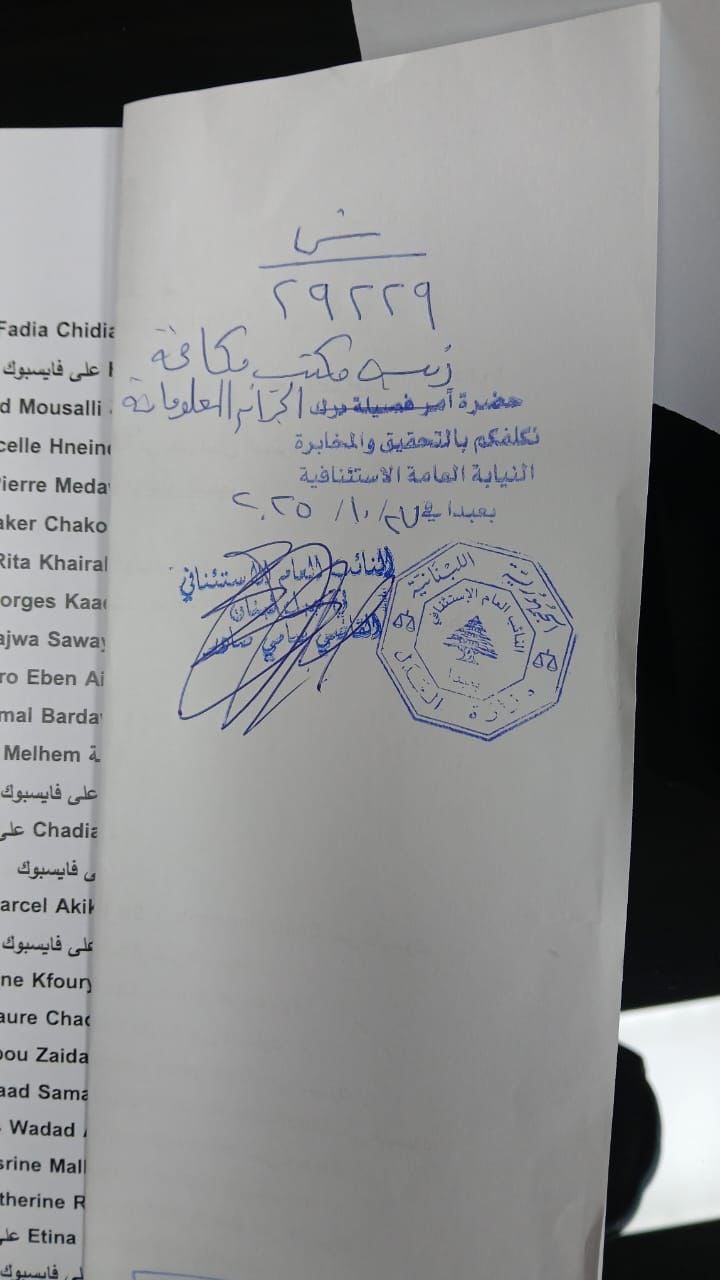 ش
٢٩٢٢٩
مكتب مكافحة
حضرة آمر فصيلة درك الجرائم المعلوماتية
نكلفكم بالتحقيق والمخابرة
النيابة العامة الاستئنافية
بعبدا في ٢٠٢٥/١٠/٢٧
النائب العام الاستئنافي
القاضي سامي صادر
الجمهورية اللبنانية
وزارة العدل
النائب العام الإستئنافي
بعبدا
Fadia Chidia
على فايسبوك
d Mousalli
celle Hnein
Pierre Meda
aker Chako
Rita Khairal
orges Kaa
ajwa Saway
ro Eben Ai
mal Barda
Melhem
على فايسبوك
Chadia على
فايسبوك
arcel Akik
على فايسبوك
ne Kfoury
aure Chac
bou Zaida
aad Sama
Wadad
srine Mall
therine R
Etina
فايسبوك